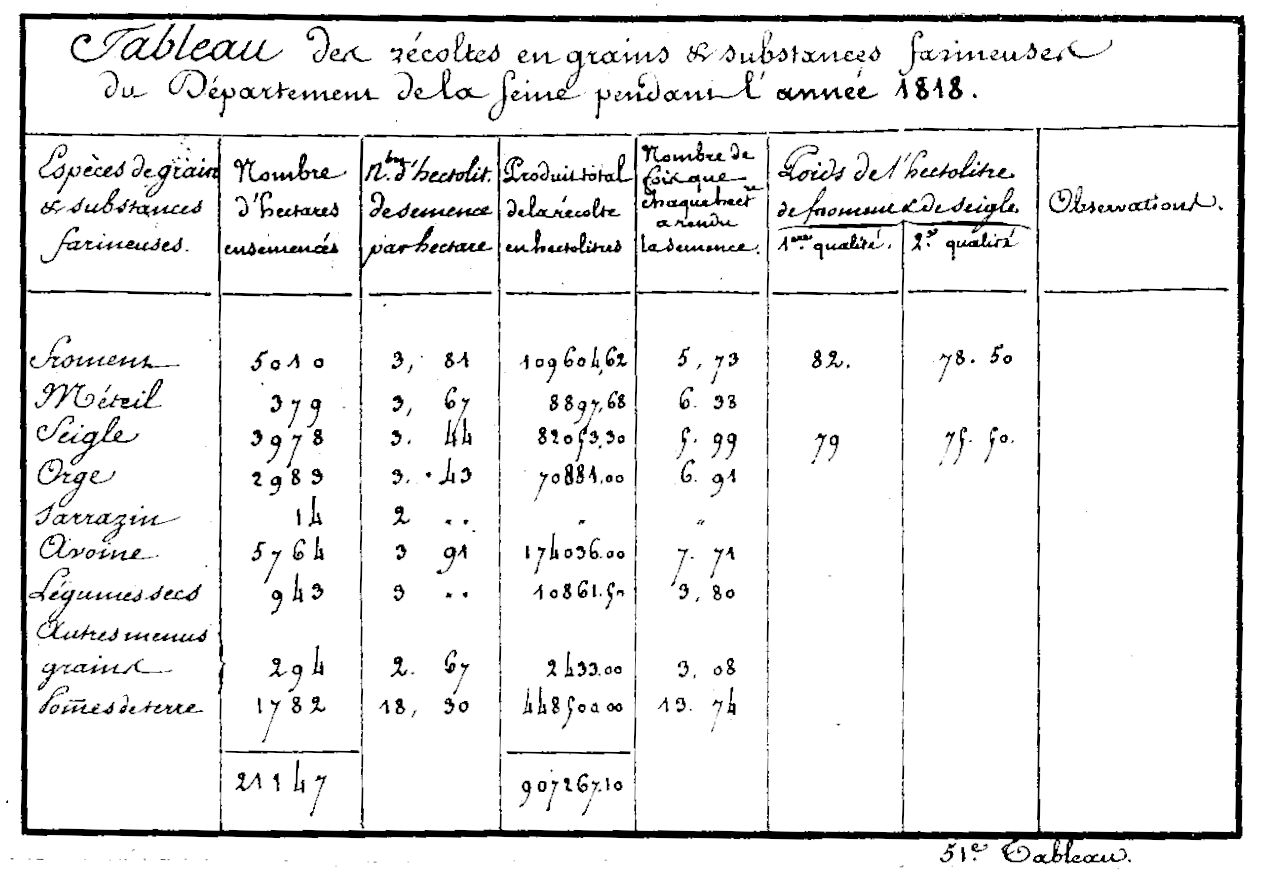 Tableau des récoltes en grains & substances farineuses
du Département de la Seine pendant l'année 1818.
Espèces de grain
& substances
farineuses.
Nombre
d'hectares
ensemencés
N.bre d'hectolit.
de semence
par hectare
Produit total
de la récolte
en hectolitres
Nombre de
fois que
chaque hect.re
a rendu
la semence.
Poids de l'hectolitre
de froment & de seigle
1ere qualité. 2.e qualité
Observations.
Froment 5010 3, 81 109604,62 5, 73 82. 78. 50
Méteil 379 3, 67 8897,68 6. 33
Seigle 3978 3. 44 82053,30 5. 99 79 75. 50.
Orge 2983 3. 43 70881.00 6. 91
Sarrazin 14 2 .. " "
Avoine 5764 3 91 174036.00 7. 71
Légumes secs 943 3 .. 10861.50 3, 80
Autres menus
grains 294 2. 67 2433.00 3, 08
Pom̃es de terre 1782 18, 30 448500.00 13. 74
21147 907267.10
51e Tableau.